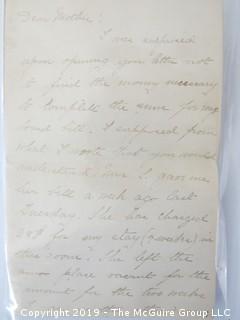 Dear Mother:
I was surprised
upon opening you letter not
to find the money necessary
to complete the sum for my
board bill. I supposed from
what I wrote that you would
understand have I gave me
her bill a week ago last
Tuesday. She has charged
for my stay (2 weeks) in
this room. She left the
place vacant for the
amount for the two weeks
Copyright 2019 - The McGuire Group, LLC